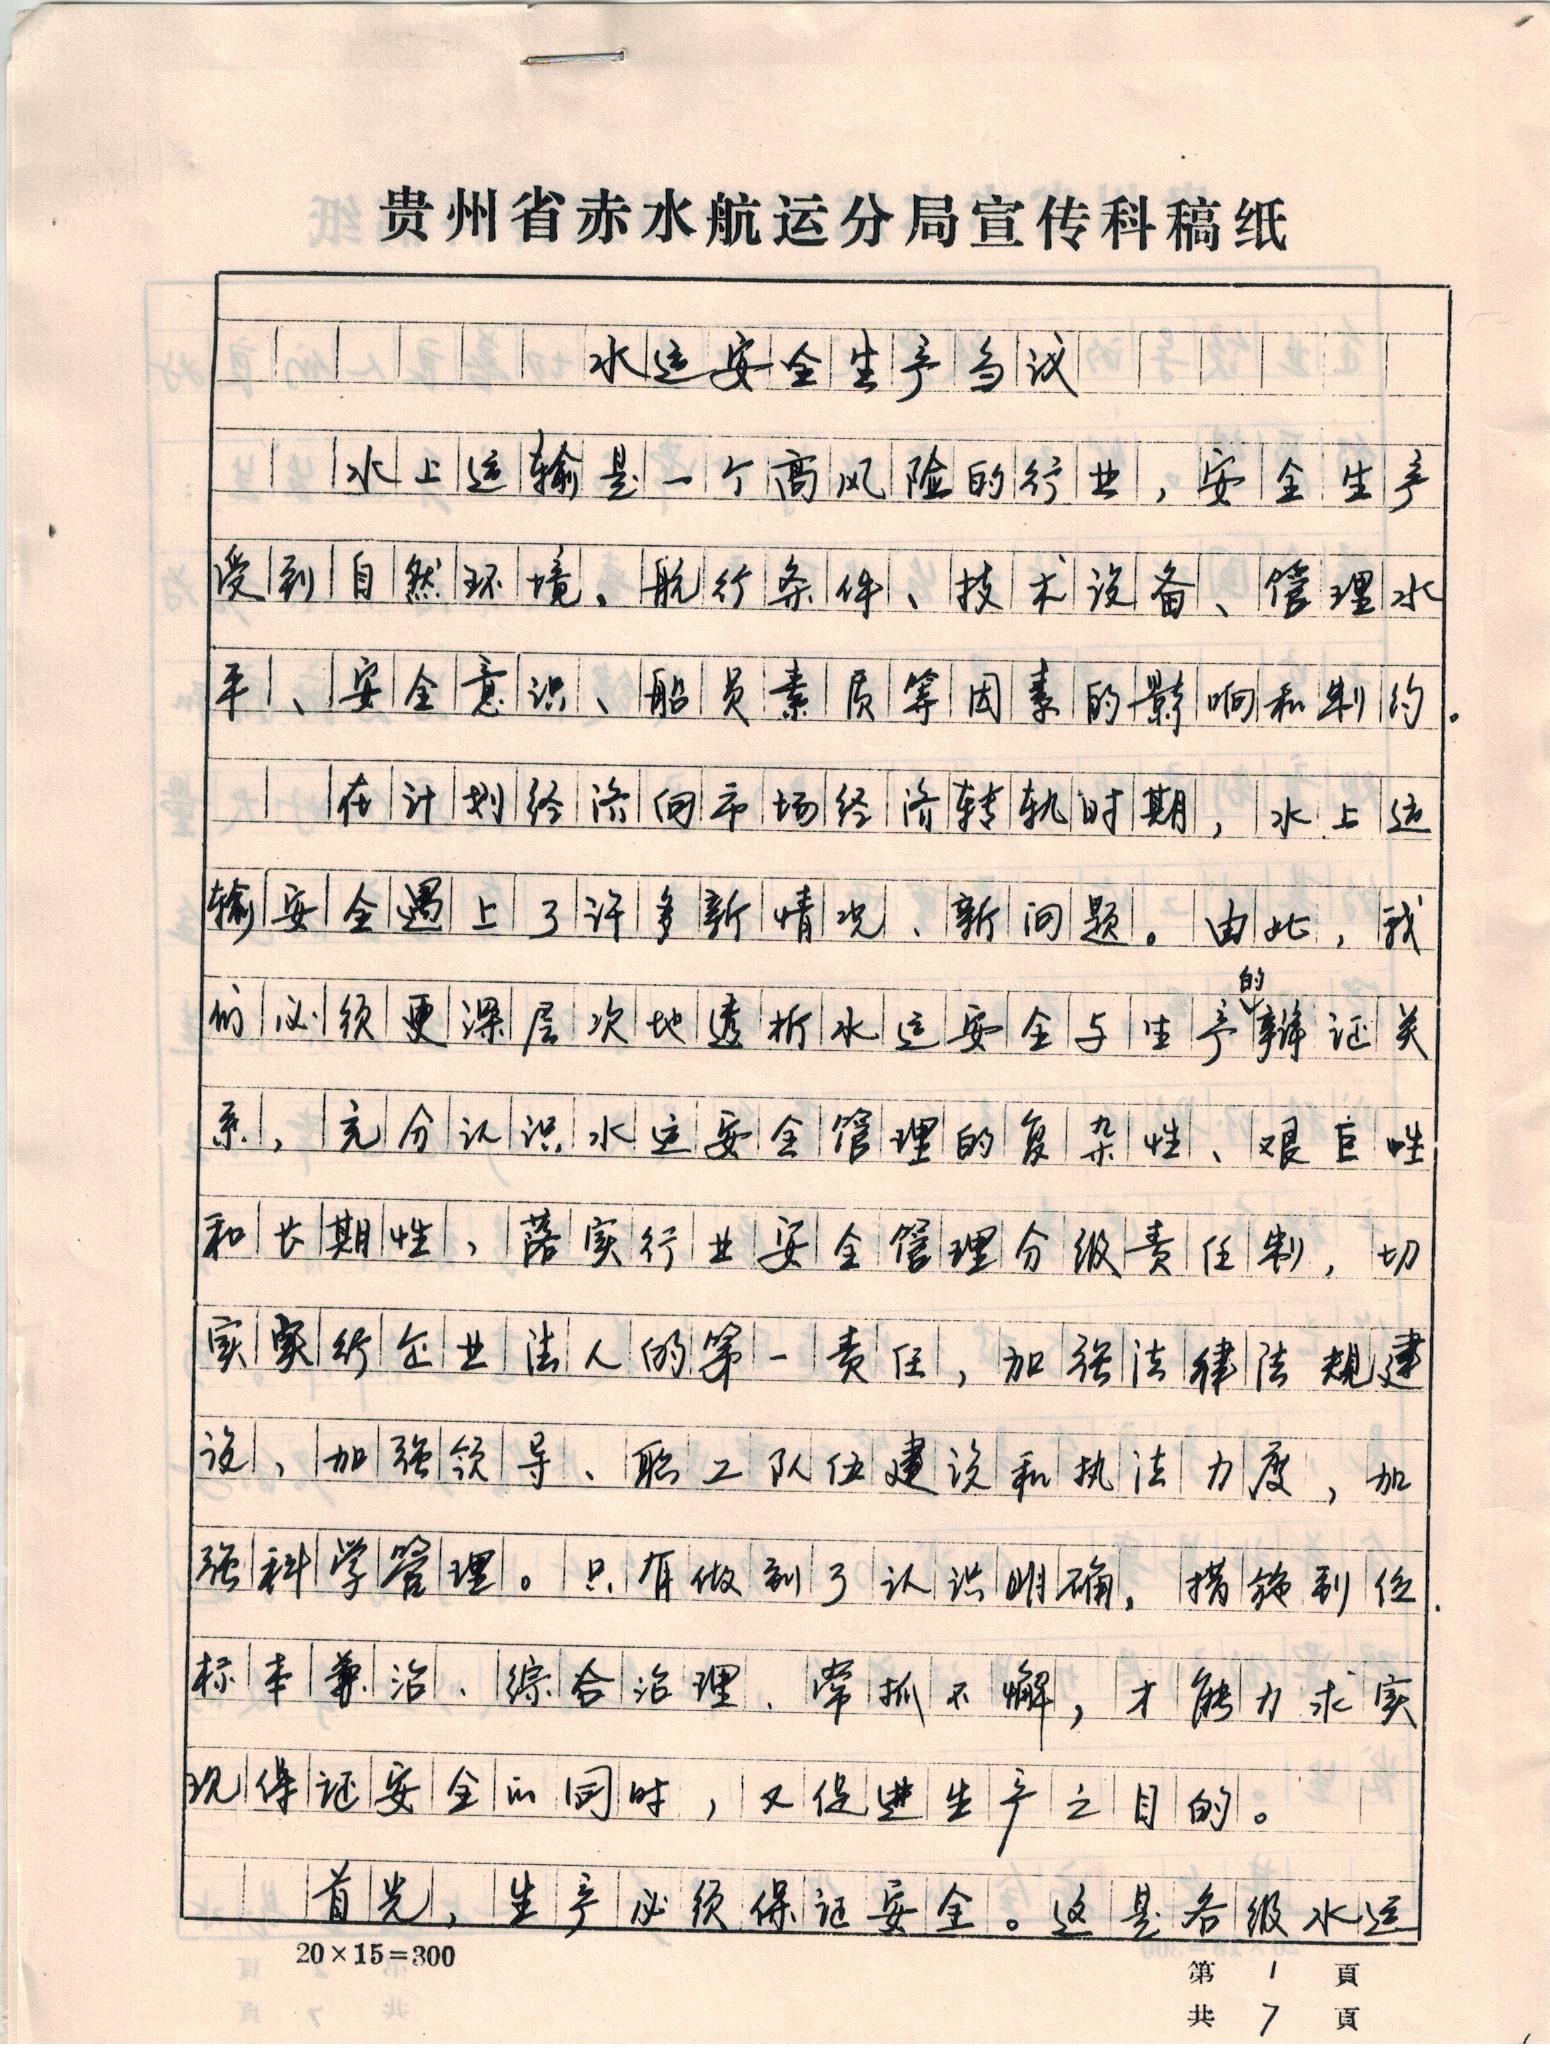 贵州省赤水航运分局宣传科稿纸
水运安全生产刍议
水上运输是一个高风险的行业，安全生产
受到自然环境、航行条件、技术设备、管理水
平、安全意识、船员素质等因素的影响和制约。
在计划经济向市场经济转轨时期，水上运
输安全遇上了许多新情况、新问题。由此，我
们必须更深层次地透析水运安全与生产的辩证关
系，充分认识水运安全管理的复杂性、艰巨性
和长期性，落实行业安全管理分级责任制，切
实实行企业法人的第一责任，加强法律法规建
设，加强领导、职工队伍建设和执法力度，加
强科学管理。只有做到了认识明确，措施到位.
标本兼治、综合治理、常抓不懈，才能力求实
现保证安全的同时，又促进生产之目的。
首先，生产必须保证安全。这是各级水运
20×15=300
第 1 頁
共 7 頁